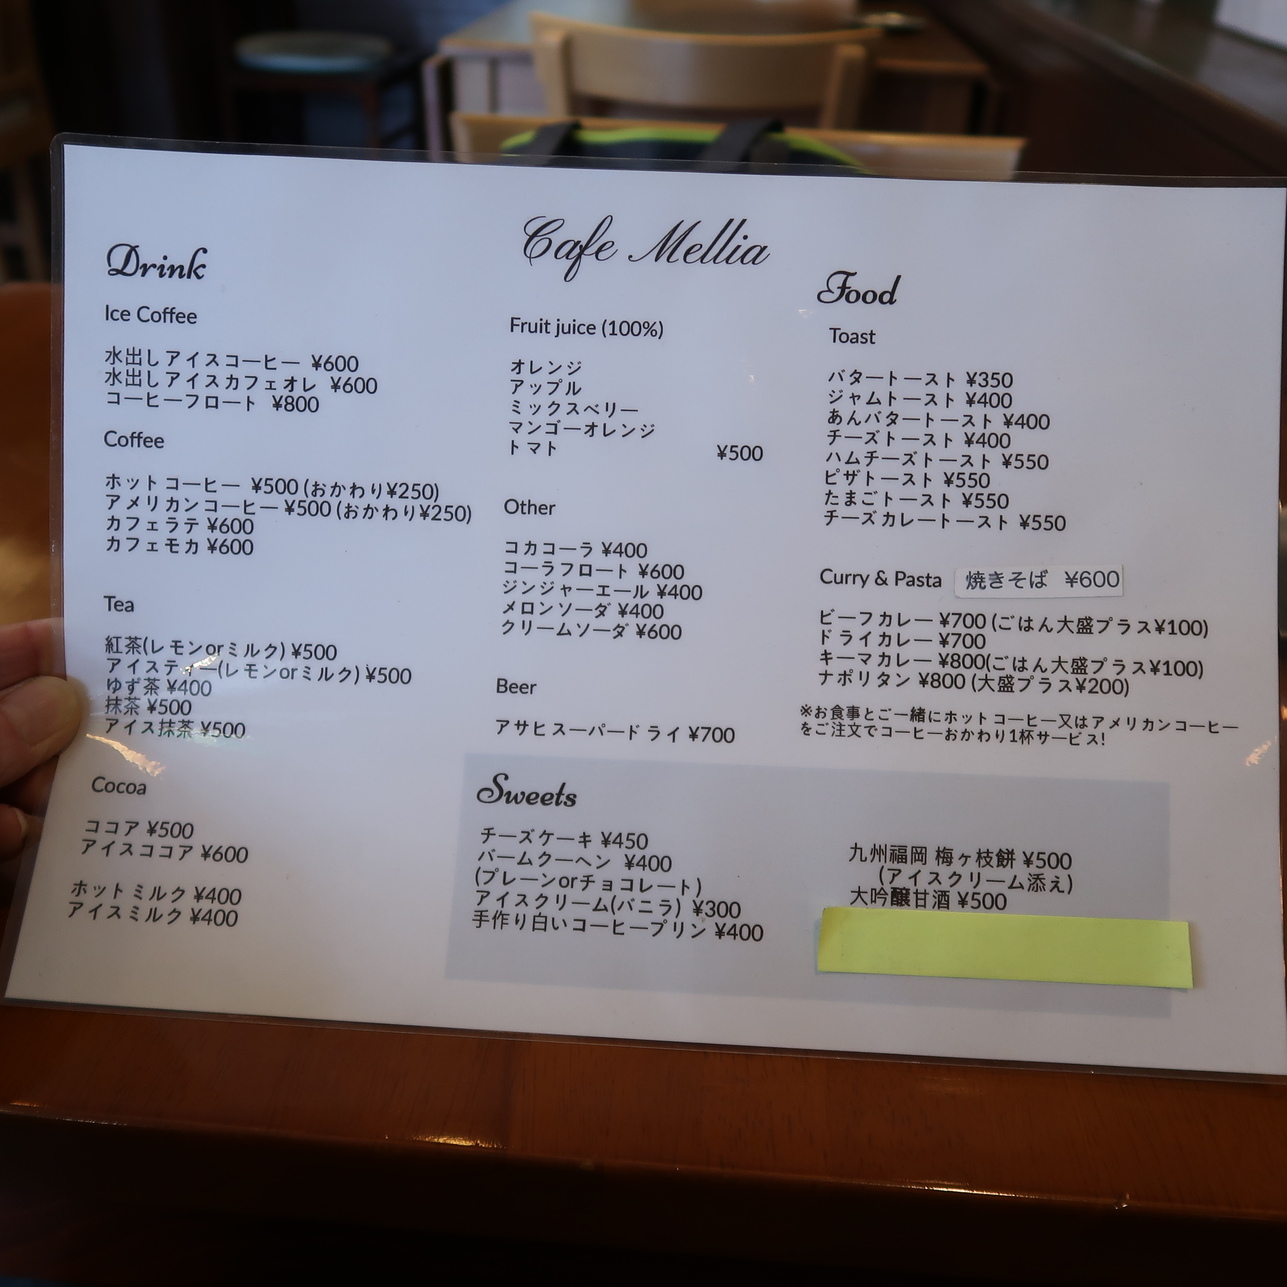 Cafe Mellia
Drink
Ice Coffee
水出しアイスコーヒー ¥600
水出しアイスカフェオレ ¥600
コーヒーフロート ¥800
Coffee
ホットコーヒー ¥500 (おかわり¥250)
アメリカンコーヒー ¥500 (おかわり¥250)
カフェラテ ¥600
カフェモカ ¥600
Tea
紅茶(レモンorミルク) ¥500
アイスティー(レモンorミルク) ¥500
ゆず茶 ¥400
抹茶 ¥500
アイス抹茶 ¥500
Cocoa
ココア ¥500
アイスココア ¥600
ホットミルク ¥400
アイスミルク ¥400
Fruit juice (100%)
オレンジ
アップル
ミックスベリー
マンゴーオレンジ
トマト ¥500
Other
コカコーラ ¥400
コーラフロート ¥600
ジンジャーエール ¥400
メロンソーダ ¥400
クリームソーダ ¥600
Beer
アサヒスーパードライ ¥700
Food
Toast
バタートースト ¥350
ジャムトースト ¥400
あんバタートースト ¥400
チーズトースト ¥400
ハムチーズトースト ¥550
ピザトースト ¥550
たまごトースト ¥550
チーズカレートースト ¥550
Curry & Pasta 焼きそば ¥600
ビーフカレー ¥700 (ごはん大盛プラス¥100)
ドライカレー ¥700
キーマカレー ¥800(ごはん大盛プラス¥100)
ナポリタン ¥800 (大盛プラス¥200)
※お食事とご一緒にホットコーヒー又はアメリカンコーヒー
をご注文でコーヒーおかわり1杯サービス!
Sweets
チーズケーキ ¥450
バームクーヘン ¥400
(プレーンorチョコレート)
アイスクリーム(バニラ) ¥300
手作り白いコーヒープリン ¥400
九州福岡 梅ヶ枝餅 ¥500
(アイスクリーム添え)
大吟醸甘酒 ¥500